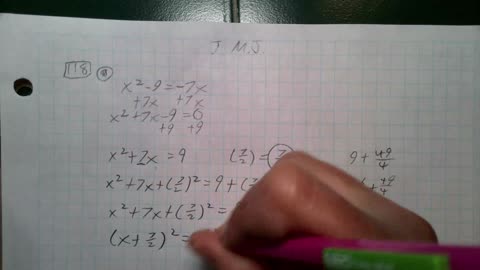 J. M. J.
118 a
x² - 9 = -7x
+7x +7x
x² + 7x - 9 = 0
+9 +9
x² + 7x = 9 (7/2) = 7/ 9 + 49/4
x² + 7x + (7/2)² = 9 + (7/ + 49/4
x² + 7x + (7/2)² =
(x + 7/2)² =